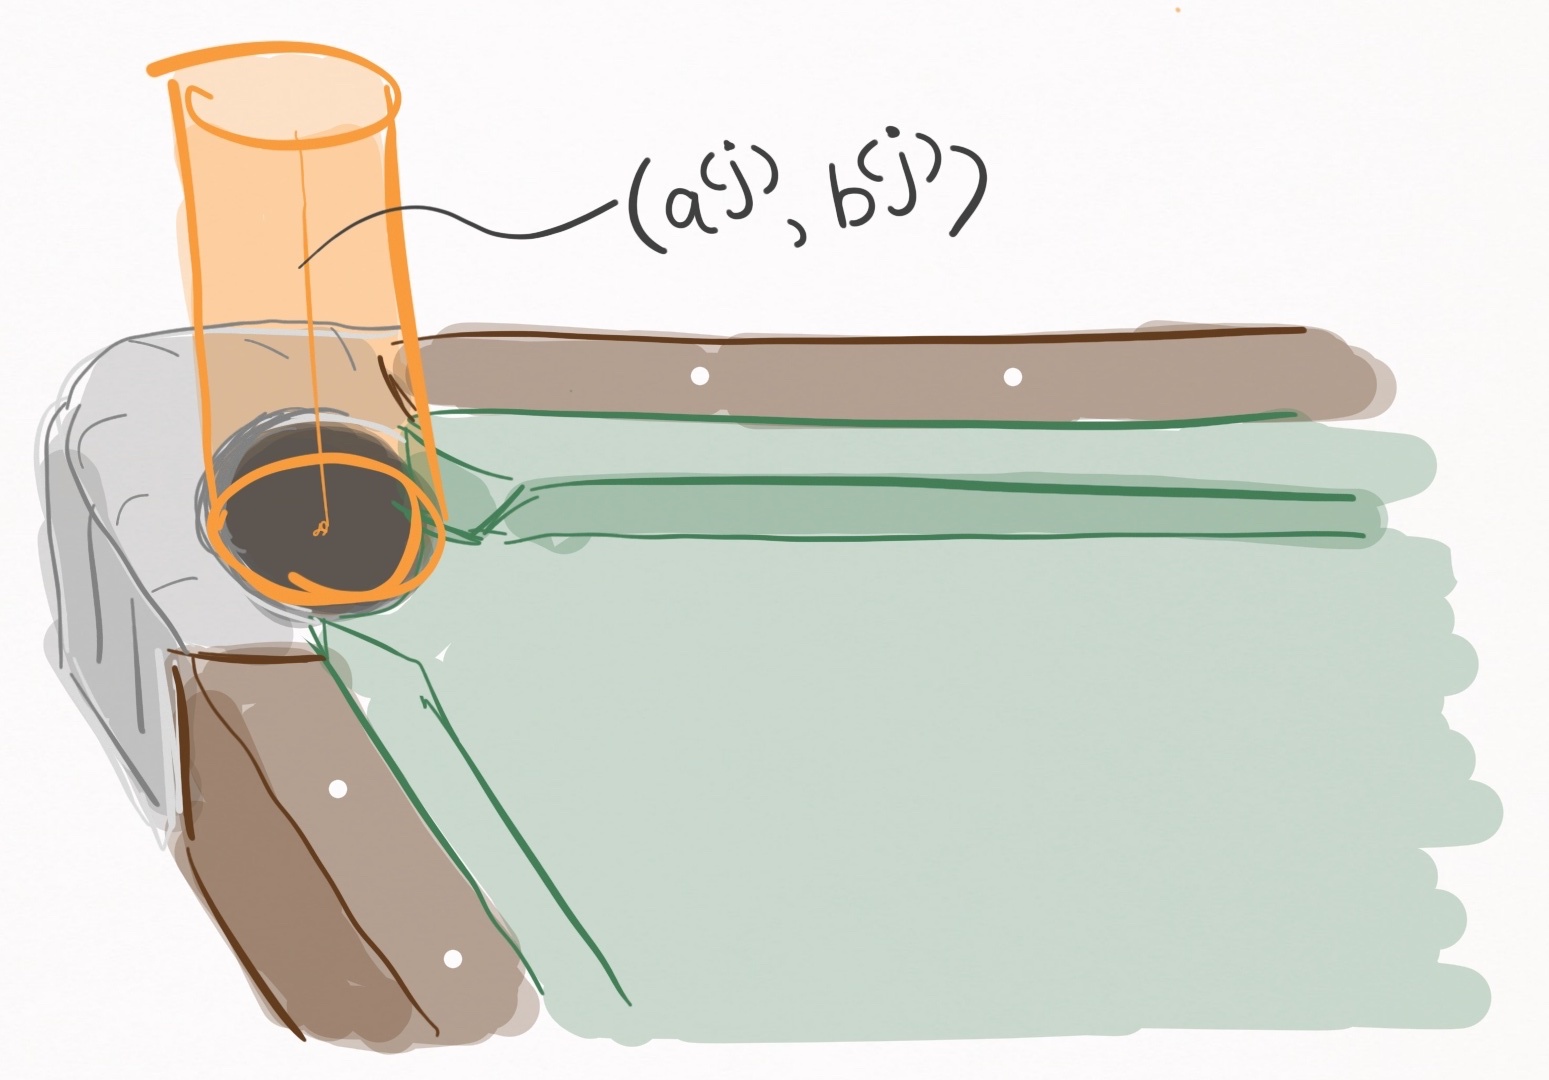 (a^(j), b^(j))